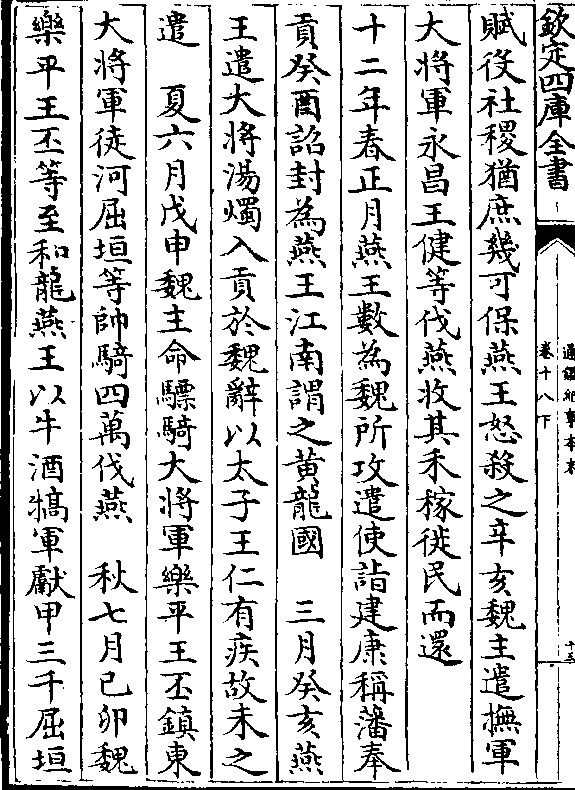 欽定四庫全書
通鑑紀事本末
卷十八下
十五
賦役社稷猶庶幾可保燕王怒殺之辛亥魏主遣撫軍
大將軍永昌王健等伐燕收其禾稼徙民而還
十二年春正月燕王數為魏所攻遣使詣建康稱藩奉
貢癸酉詔封為燕王江南謂之黄龍國 三月癸亥燕
王遣大將湯燭入貢於魏辭以太子王仁有疾故未之
遣 夏六月戊申魏主命驃騎大將軍樂平王丕鎮東
大將軍徒河屈垣等帥騎四萬伐燕 秋七月己卯魏
樂平王丕等至和龍燕王以牛酒犒軍獻甲三千屈垣